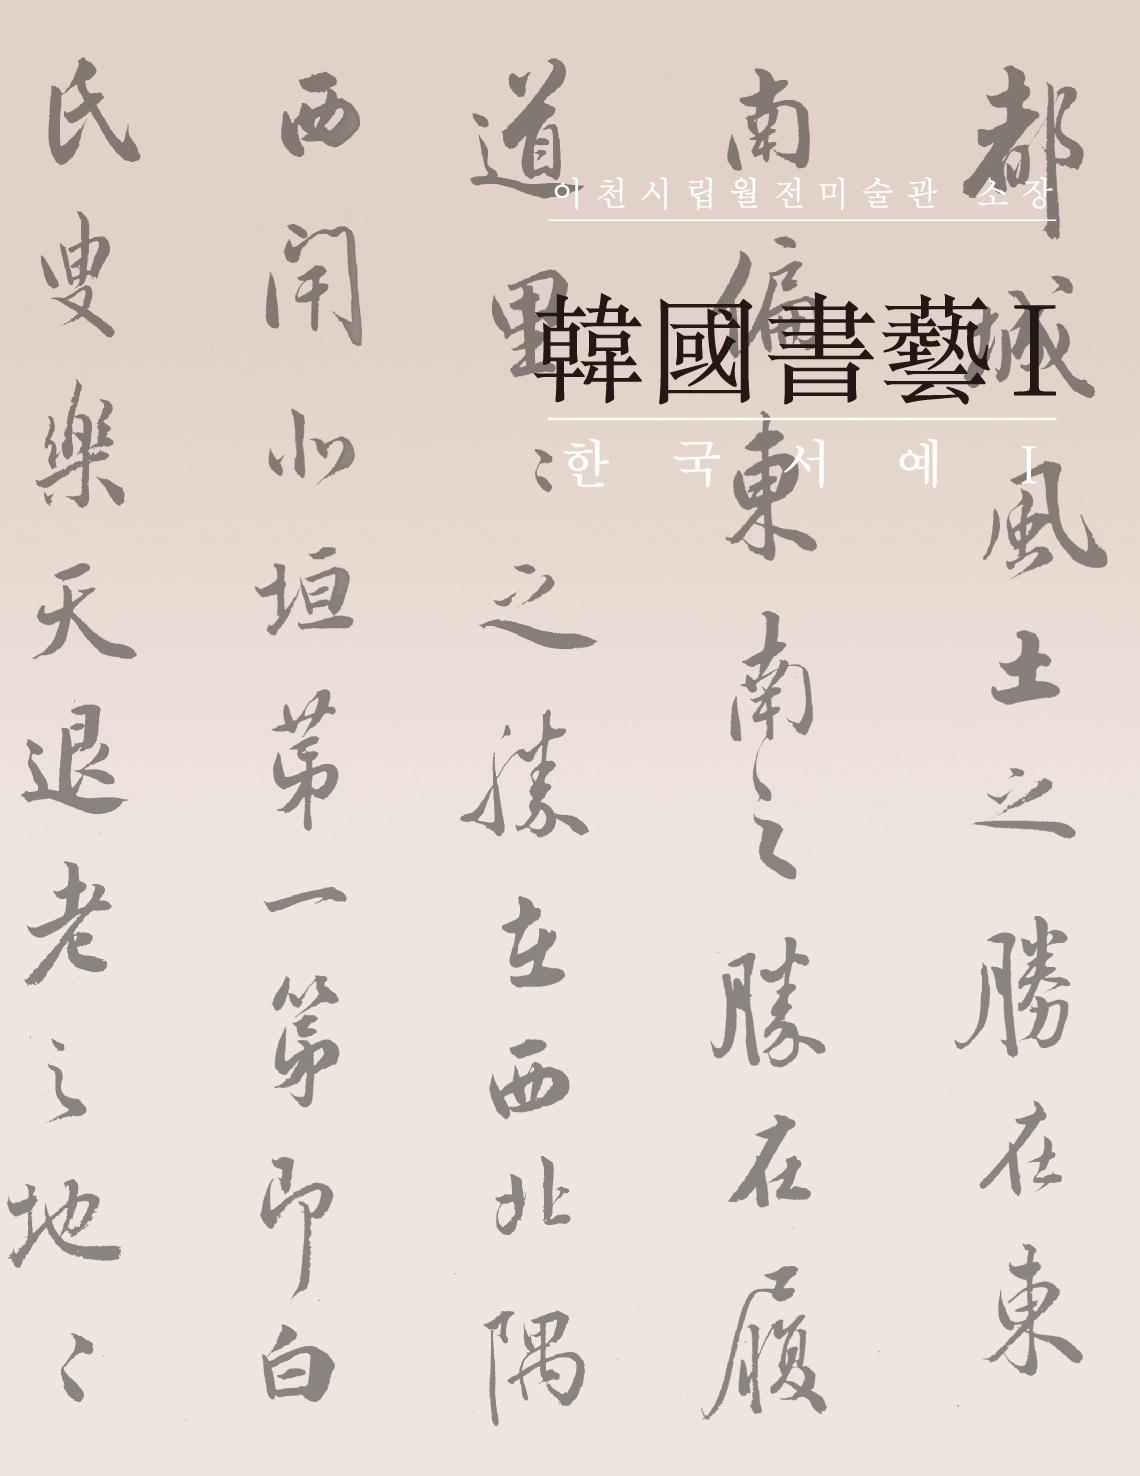 이천시립월전미술관 소장
韓國書藝 I
한국서예 I
都城風土之勝在東
南偏東南之勝在履
道里〻之勝在西北隅
西閈北垣第一第即白
氏叟樂天退老之地〻